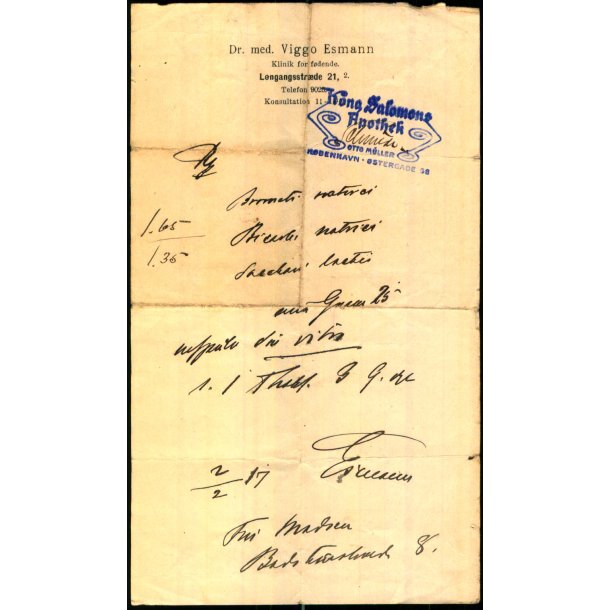 Dr. med. Viggo Esmann
Klinik for fødende.
Længangsstræde 21, 2.
Telefon 9020
Konsultation 11
Kong Salomons
Apothek
OTTO MÜLLER
KØBENHAVN · ØSTERGADE 58
Rp
Bromet natrici
1.65
Bicarb natrici
1.35
Sacchari lactis
ana Gram 25
di vitro
s. 1 Thesk. 3 G. dgl
2/2 17 Esmann
Fru Madsen
Badstuestræde 8.